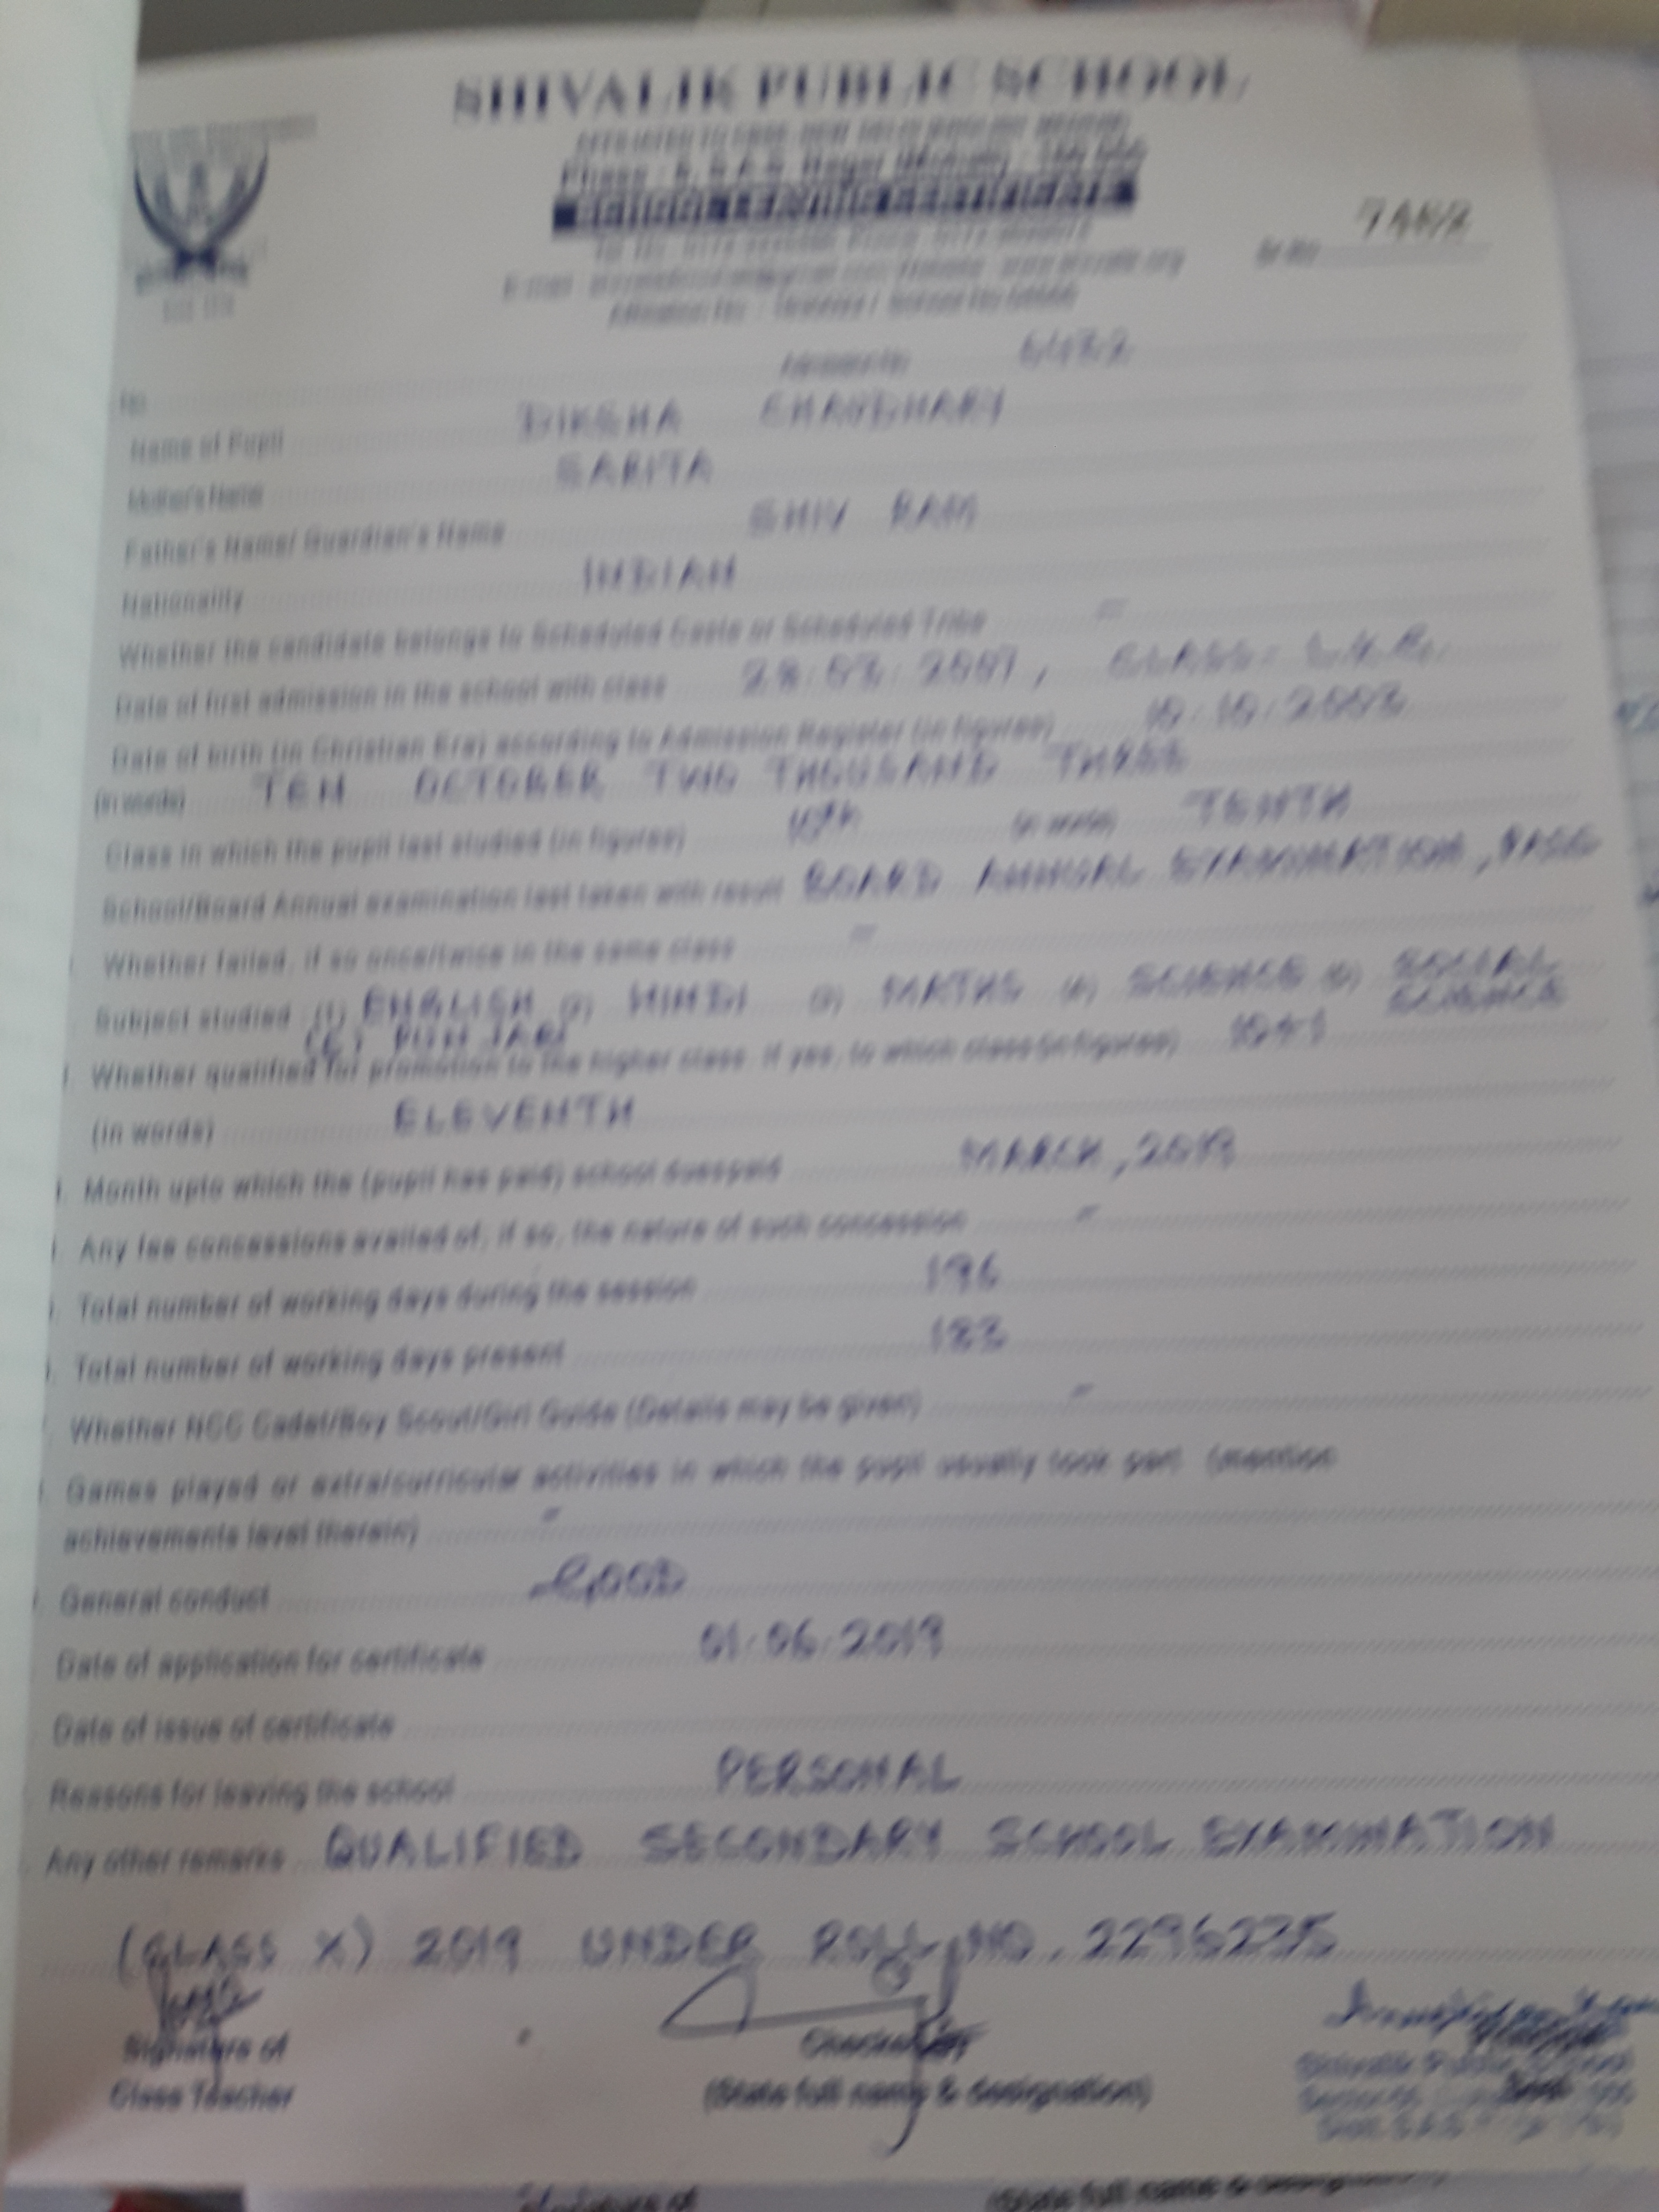 SHIVALIK PUBLIC SCHOOL
Phase : 6, S.A.S. Nagar (Mohali) - 160
Sr.No. 7482
Admission No. 6482
Name of Pupil DIKSHA CHAUDHARY
Mother's Name SARITA
Father's Name/ Guardian's Name SHIV RAM
Nationality INDIAN
Whether the candidate belongs to Scheduled Caste or Scheduled Tribe -
Date of first admission in the school with class 28.03.2007, CLASS- L.K.G.
Date of birth (in Christian Era) according to Admission Register (in figures) 10.10.2003
(in words) TEN OCTOBER TWO THOUSAND THREE
Class in which the pupil last studied (in figures) 10th (in words) TENTH
School/Board Annual examination last taken with result BOARD ANNUAL EXAMINATION, PASS
Whether failed, if so once/twice in the same class -
Subject studied (1) ENGLISH (2) HINDI (3) MATHS (4) SCIENCE (5) SOCIAL SCIENCE
(6) PUNJABI
Whether qualified for promotion to the higher class. If yes, to which class (in figures) 10+1
(in words) ELEVENTH
Month upto which the (pupil has paid) school dues paid MARCH, 2019
Any fee concessions availed of, if so, the nature of such concession -
Total number of working days during the session 196
Total number of working days present 183
Whether NCC Cadet/Boy Scout/Girl Guide (Details may be given) -
Games played or extra/curricular activities in which the pupil usually took part (mention
achievements level therein) -
General conduct GOOD
Date of application for certificate 01.06.2019
Date of issue of certificate
Reasons for leaving the school PERSONAL
Any other remarks QUALIFIED SECONDARY SCHOOL EXAMINATION
(CLASS X) 2019 UNDER ROLL NO. 2296235
Signature of Checked by
Class Teacher (State full name & designation)
Shivalik Public School
(State full name & designation)